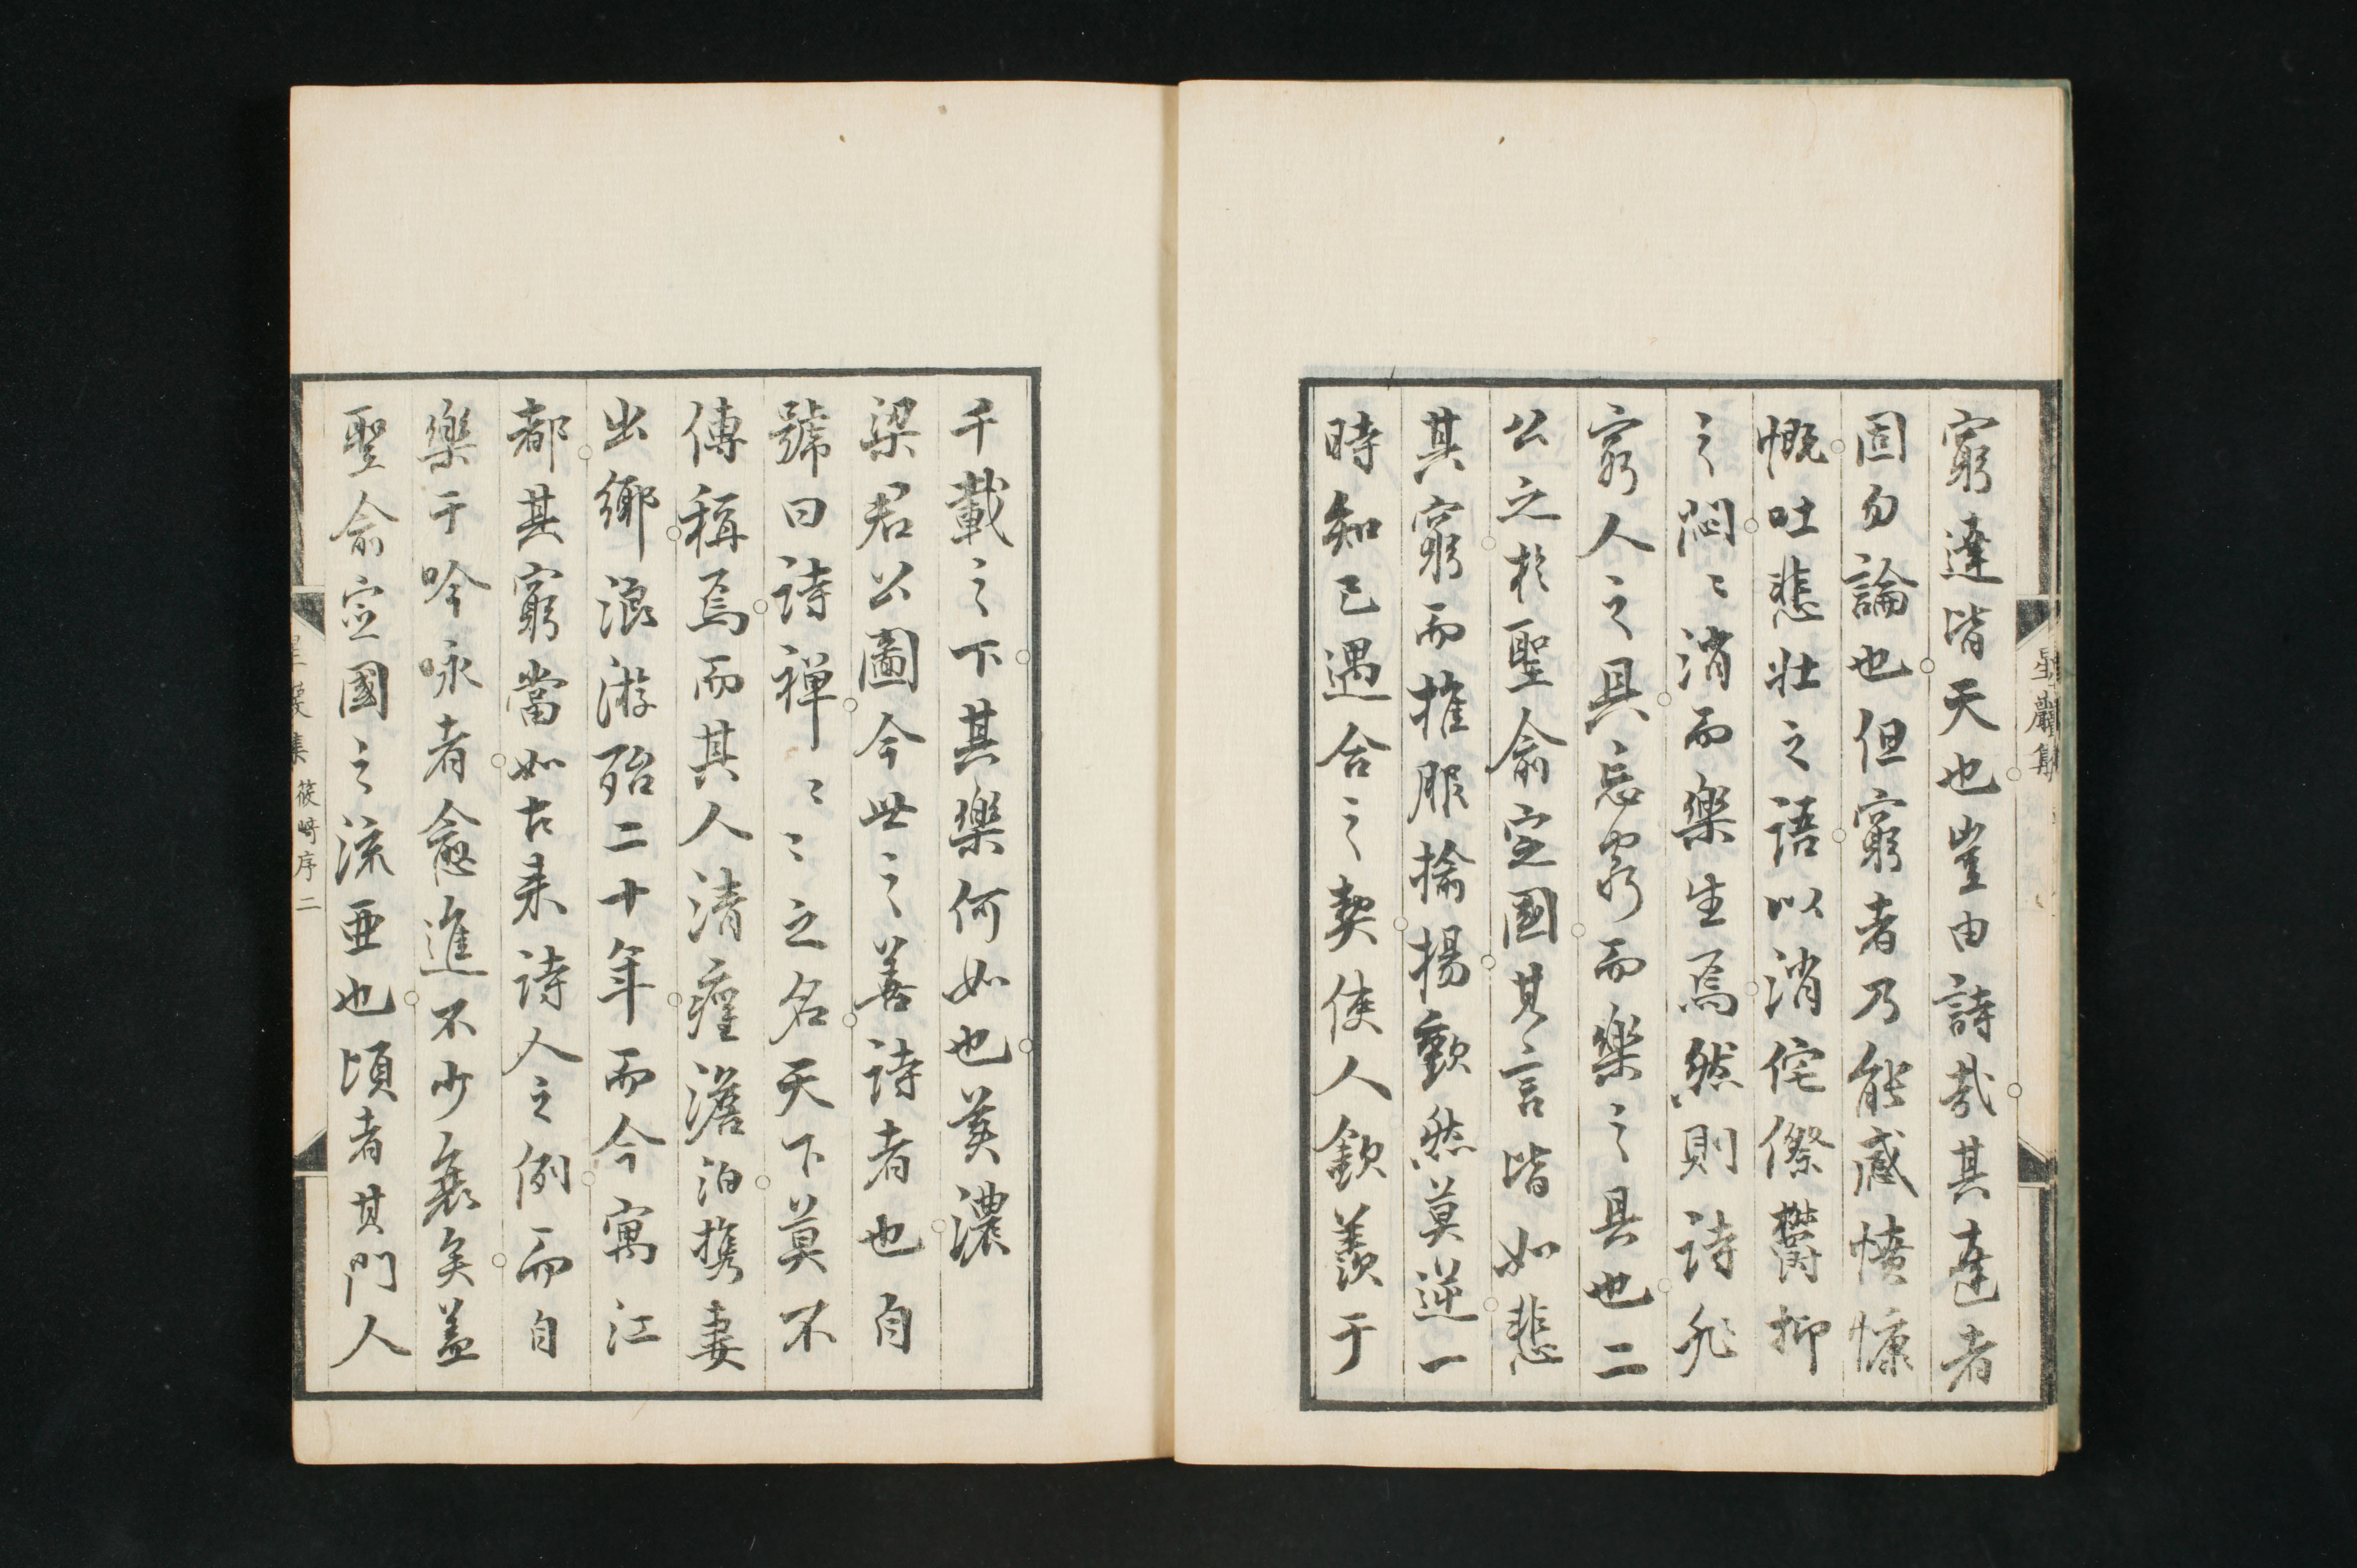 星巖集
窮達皆天也豈由詩哉其達者
固勿論也但窮者乃能感憤慷
慨吐悲壯之語以消侘傺鬱抑
之悶〻消而樂生焉然則詩非
窮人之具忘窮而樂之具也二
公之於聖俞定國其言皆如悲
其窮而推服揄揚歡然莫逆一
時知己遇合之契使人欽羨于
千載之下其樂何如也美濃
梁君公圖今世之善詩者也自
號曰詩禪〻〻之名天下莫不
傳稱焉而其人清癯澹泊携妻
出鄉浪游殆二十年而今寓江
都其窮當如古来詩人之例而自
樂于吟咏者愈進不少衰矣盖
聖俞定國之流亜也頃者其門人
星巖集 筱崎序 二